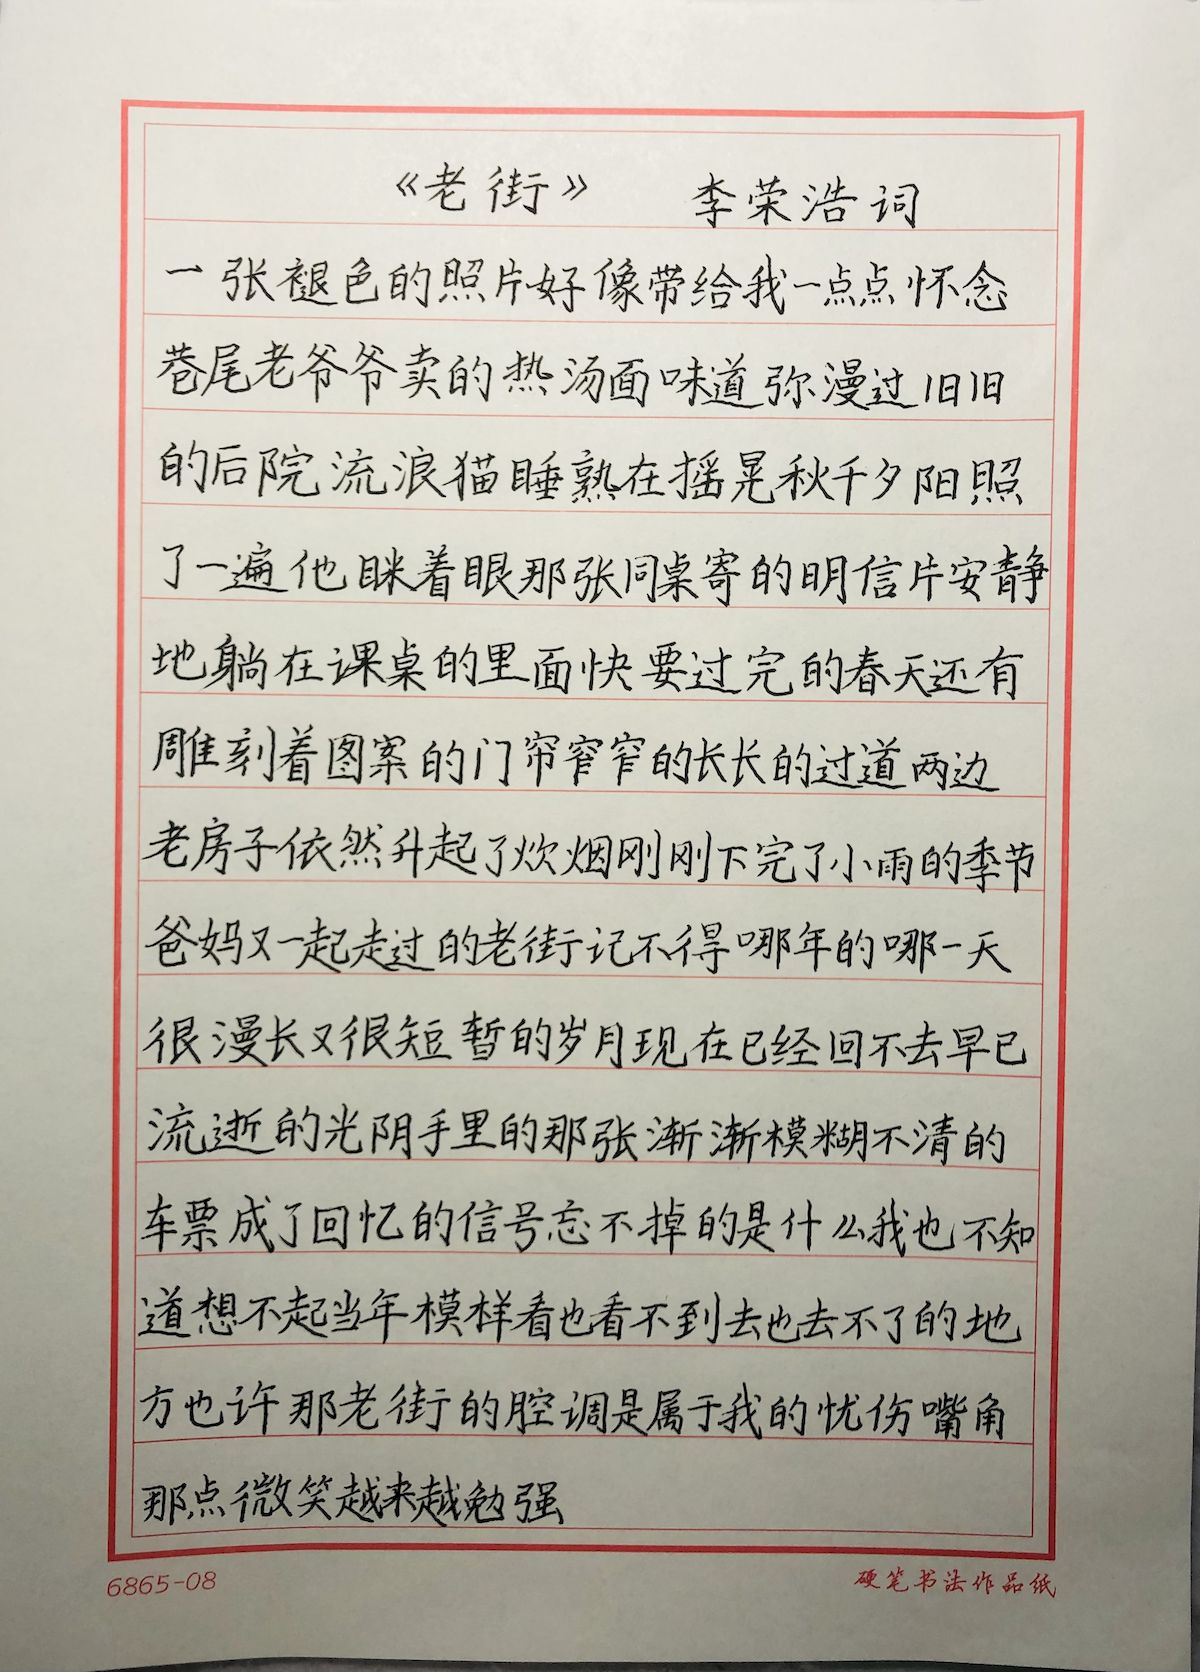 《老街》 李荣浩词
一张褪色的照片好像带给我一点点怀念
巷尾老爷爷卖的热汤面味道弥漫过旧旧
的后院流浪猫睡熟在摇晃秋千夕阳照
了一遍他眯着眼那张同桌寄的明信片安静
地躺在课桌的里面快要过完的春天还有
雕刻着图案的门帘窄窄的长长的过道两边
老房子依然升起了炊烟刚刚下完了小雨的季节
爸妈又一起走过的老街记不得哪年的哪一天
很漫长又很短暂的岁月现在已经回不去早已
流逝的光阴手里的那张渐渐模糊不清的
车票成了回忆的信号忘不掉的是什么我也不知
道想不起当年模样看也看不到去也去不了的地
方也许那老街的腔调是属于我的忧伤嘴角
那点微笑越来越勉强
6865-08
硬笔书法作品纸